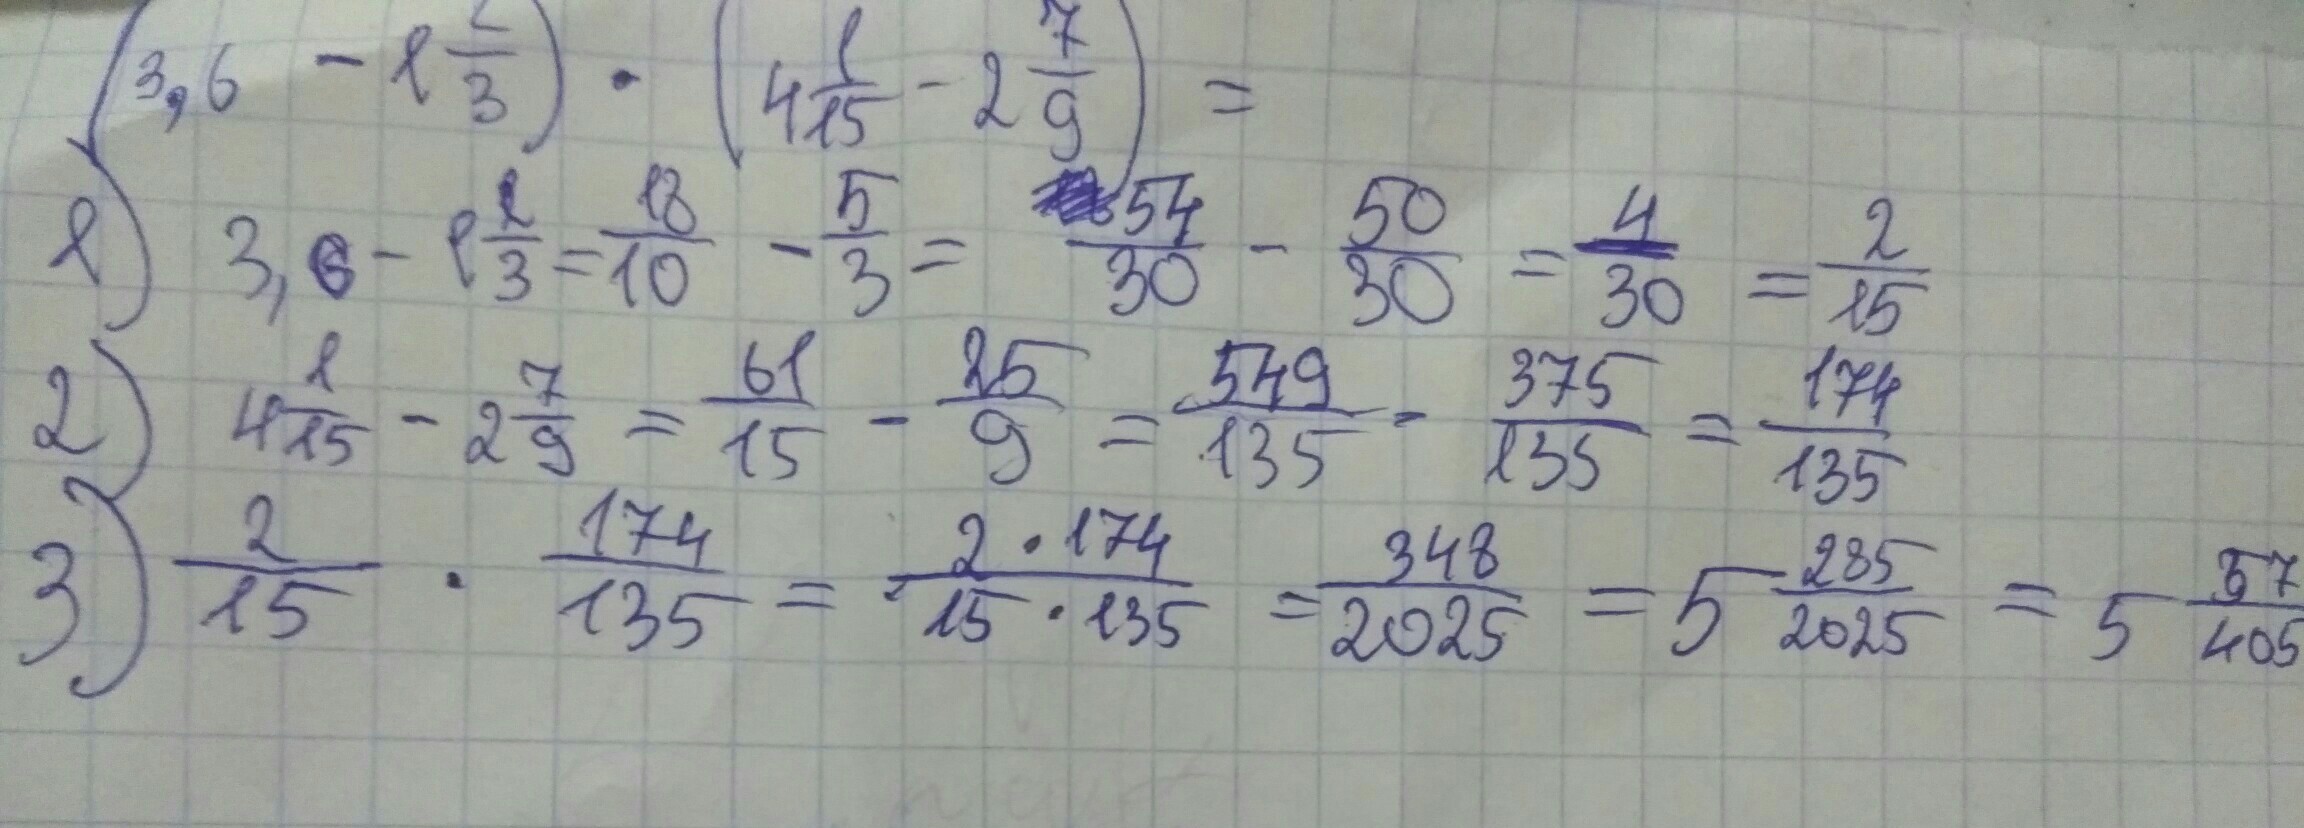 (3,6 - 1 2/3) · (4 1/15 - 2 7/9) =
1) 3,6 - 1 2/3 = 18/10 - 5/3 = 54/30 - 50/30 = 4/30 = 2/15
2) 4 1/15 - 2 7/9 = 61/15 - 25/9 = 549/135 - 375/135 = 174/135
3) 2/15 · 174/135 = 2·174/15·135 = 348/2025 = 5 285/2025 = 5 57/405